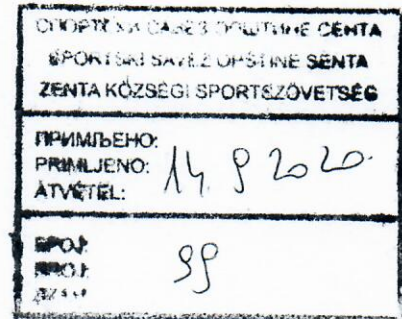 СПОРТСКИ САВЕЗ ОПШТИНЕ СЕНТА
SPORTSKI SAVEZ OPŠTINE SENTA
ZENTA KÖZSÉGI SPORTSZÖVETSÉG
ПРИМЉЕНО:
PRIMLJENO: 14. 9 2020.
ÁTVÉTEL:
БРОЈ:
BROJ: 99